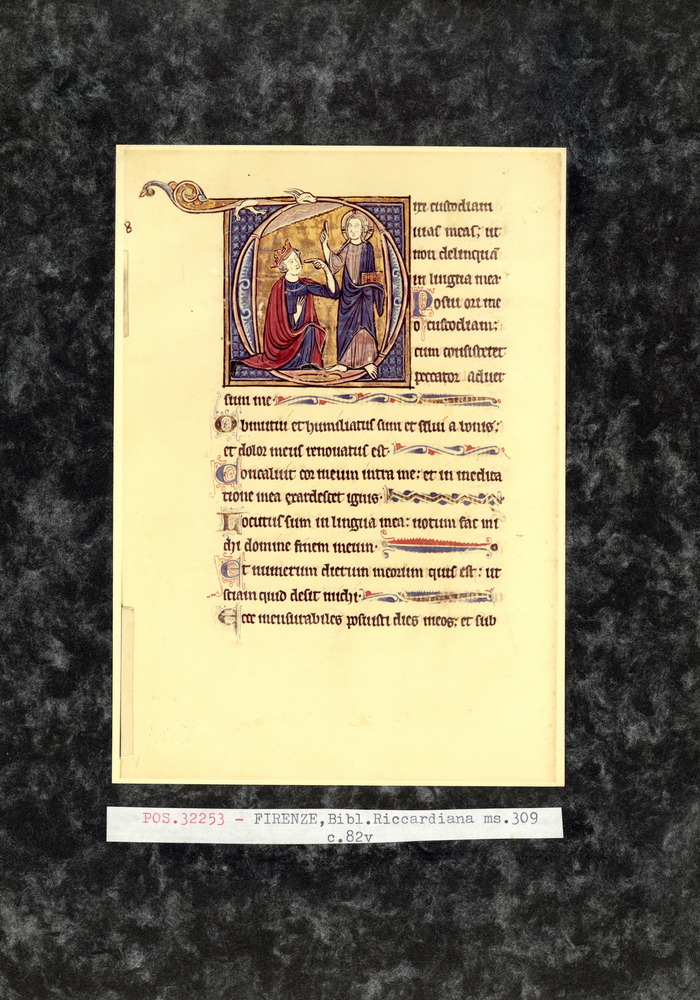 8
ixi custodiam
uias meas; ut
non delinquā
in lingua mea.
Posui ori me
o custodiam;
cum consisteret
peccator aduer
sum me.
Obmutui et humiliatus sum et silui a bonis;
et dolor meus renouatus est.
Concaluit cor meum intra me; et in medita
tione mea exardescet ignis.
Locutus sum in lingua mea; notum fac mi
chi domine finem meum.
Et numerum dierum meorum quis est; ut
sciam quid desit michi.
Ecce mensurabiles posuisti dies meos; et sub
POS.32253 - FIRENZE,Bibl.Riccardiana ms.309
c.82v